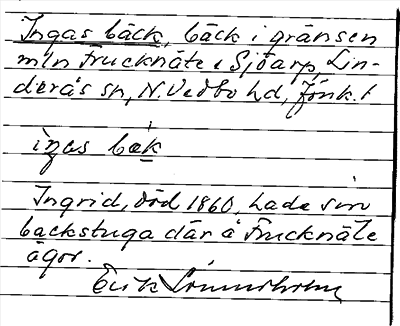 Ingas bäck, bäck i gränsen
m/n Frucknäte o Sjöarp, Lin-
derås sn, N. Vedbo hd, Jönk. l
iŋas bæk
Ingrid, död 1860, hade sin
backstuga där å Frucknäte
ägor.
Erik